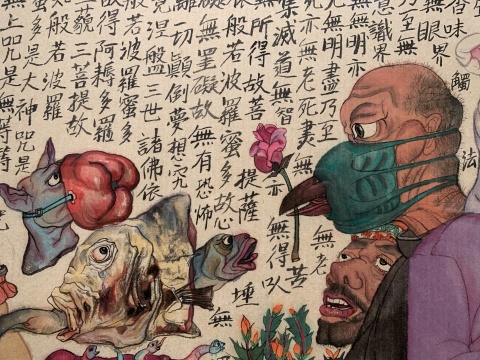 香味觸法
無眼界
乃至無
意識界
無無明亦
無無明盡乃至無老
死亦無老死盡無苦
集滅道無智亦無得以
無所得故菩提薩埵
般若波羅蜜多故心無
礙無罣礙故無有恐怖
離一切顛倒夢想究
竟涅盤三世諸佛依
般若波羅蜜多
故得阿耨多羅
三藐三菩提故
般若波羅
蜜多是大神咒是
無上咒是無等等